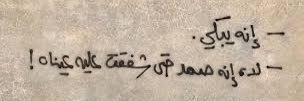 – إنه يبكي.
– لا، إنه صمد حتى شفقت عليه عيناه!